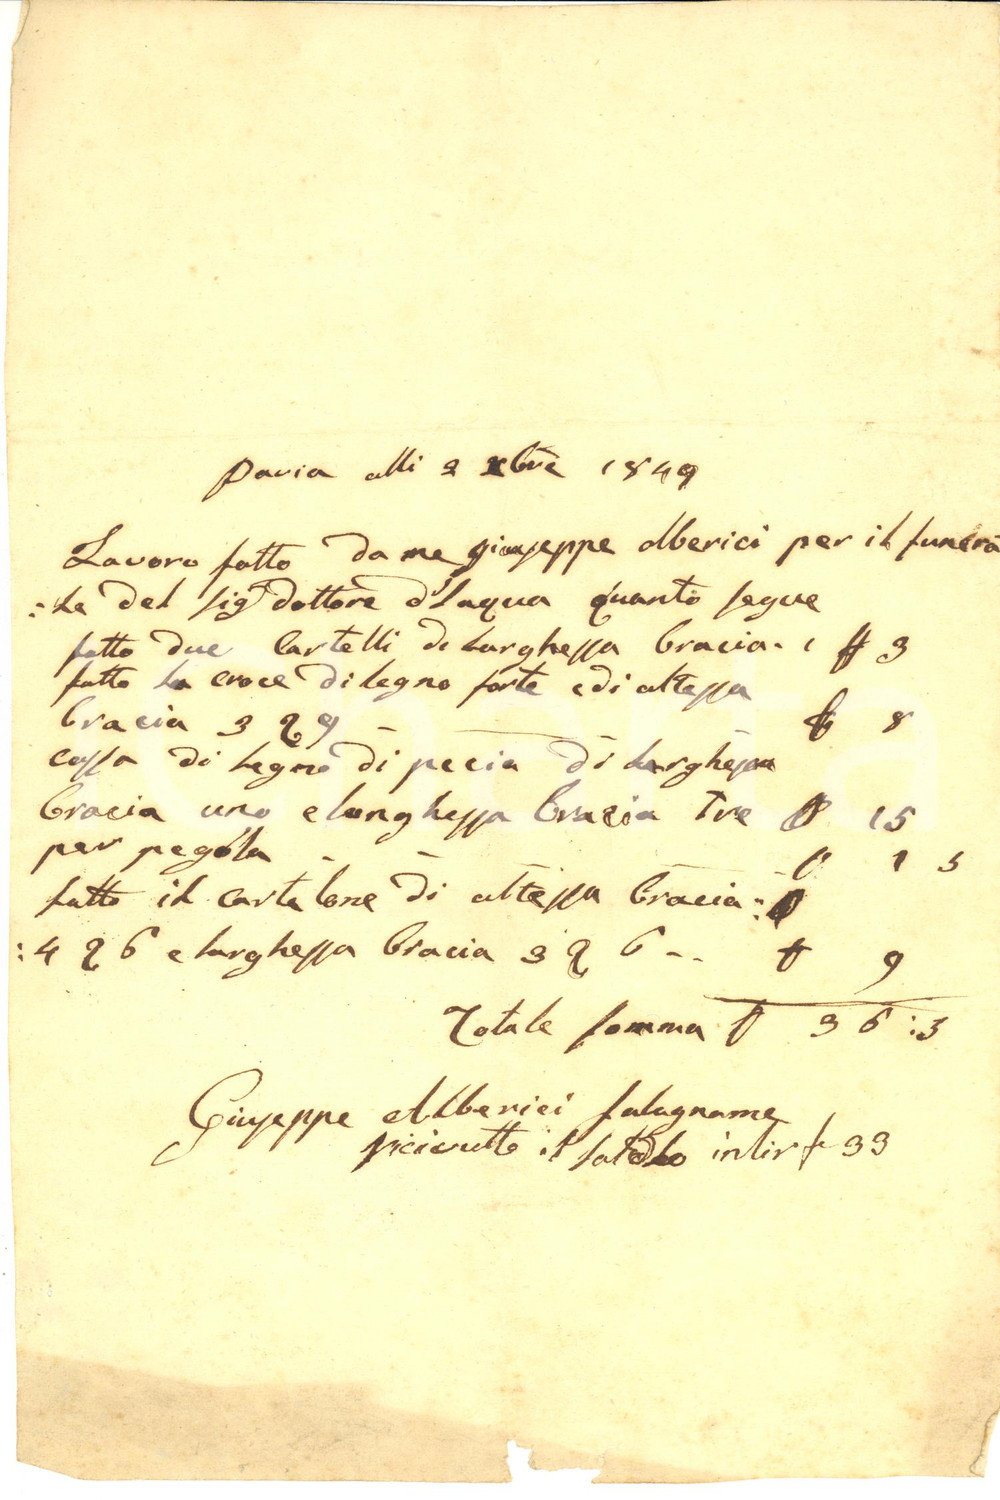 Pavia alli 2 xbre 1849
Lavoro fatto da me Giuseppe Alberici per il funera
:le del sig dottore d'laqua quanto segue
fatto due Cartelli di larghessa bracia. 1 # 3
fatto la croce di legno forte e di altessa
bracia 3 2 9 — 8
cassa di legno di pecia di larghessa
bracia uno e longhessa bracia tre 15
per pegola — — 1 3
fatto il cartelone di altessa bracia :
:4 2 6 e larghessa bracia 3 2 6 -- 9
Totale somma 36 :3
Giuseppe Alberici falagname
riceiuto il saldo in lir 33